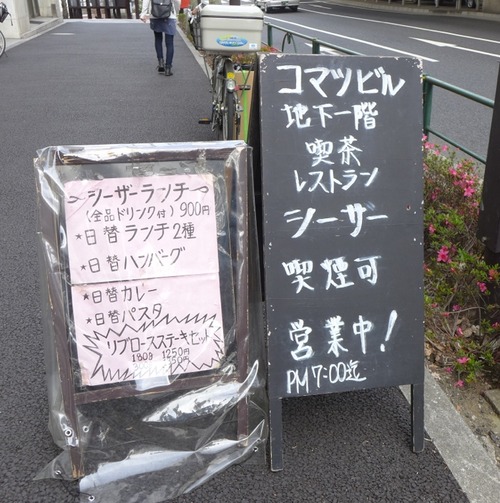 シーザーランチ
(全品ドリンク付) 900円
★日替ランチ2種
★日替ハンバーグ
★日替カレー
★日替パスタ
リブロースステーキセット
180g 1250円
コマツビル
地下一階
喫茶
レストラン
シーザー
喫煙可
営業中!
PM7:00迄